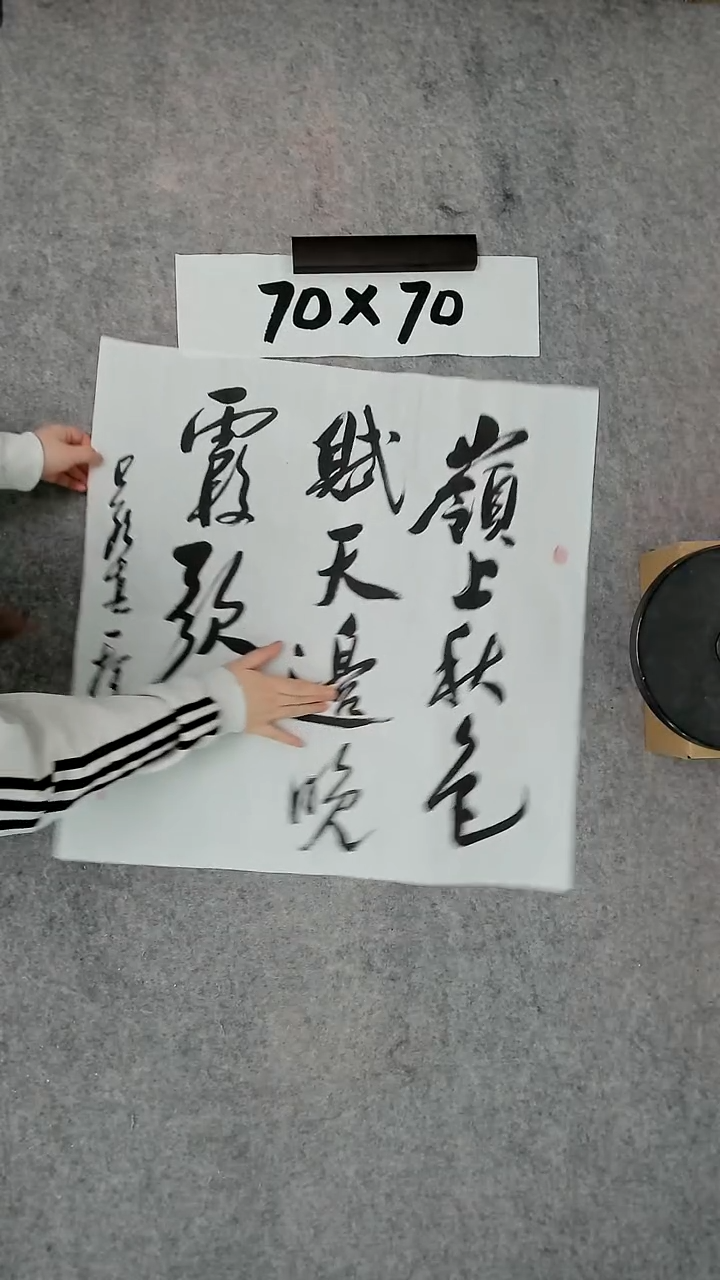 70×70
嶺上秋色
賦天邊晚
霞歌